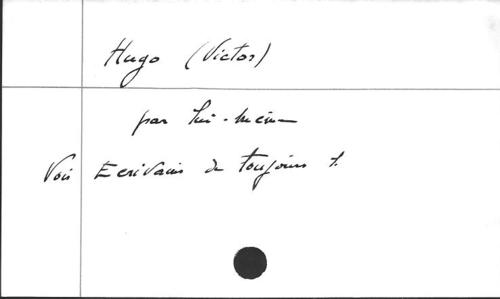 Hugo (Victor)
par lui-même
Voir Ecrivains de toujours 1.